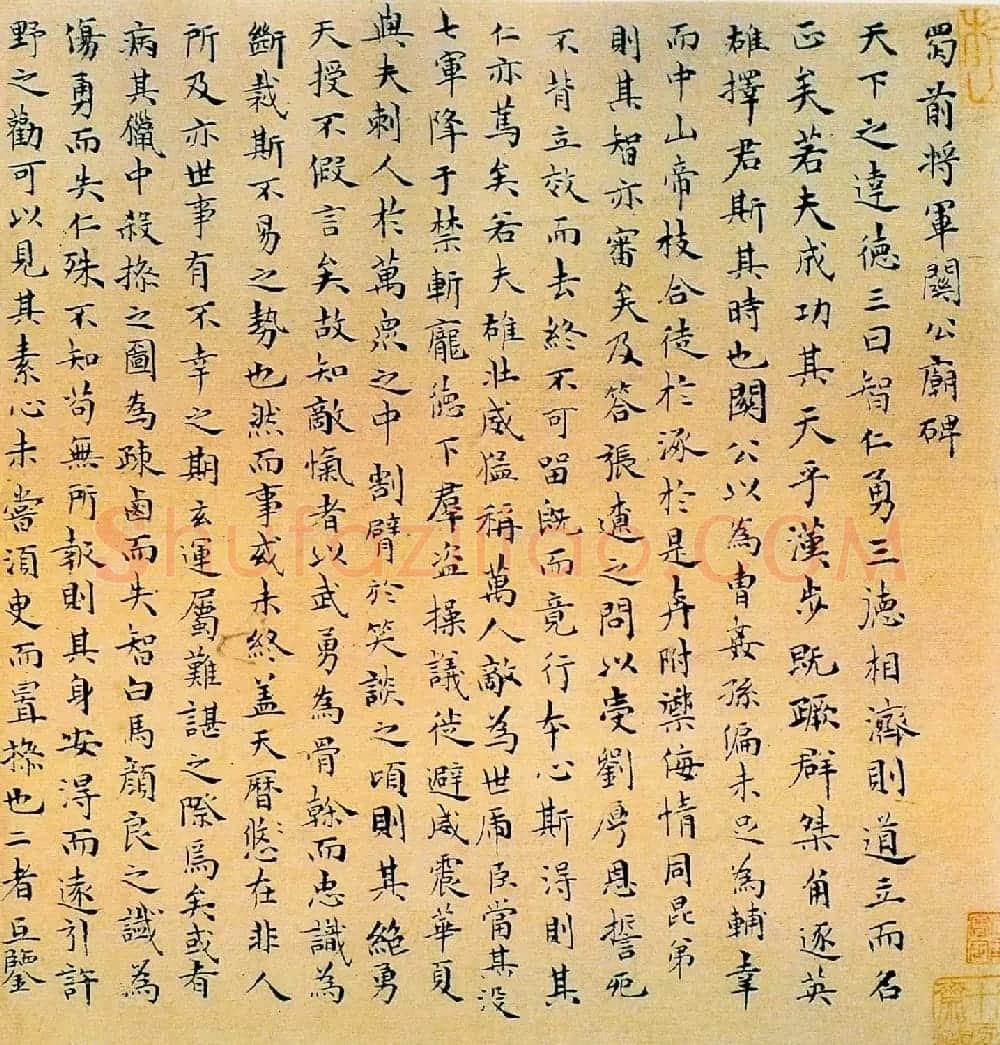 蜀前将軍關公廟碑
天下之達德三曰智仁勇三德相濟則道立而名
正矣若夫成功其天乎漢步既蹶群桀角逐英
雄擇君斯其時也關公以為曹姦孫偏未足為輔幸
而中山帝枝合徒於涿於是奔附禦侮情同昆弟
則其智亦審矣及答張遼之問以受劉厚恩誓死
不背立效而去終不可留既而竟行本心斯得則其
仁亦篤矣若夫雄壯威猛稱萬人敵為世虎臣當其没
七軍降于禁斬龐德下羣盜操議徙避威震華夏
與夫刺人於萬衆之中割臂於笑談之頃則其絶勇
天授不假言矣故知敵愾者以武勇為骨榦而忠識為
斷裁斯不易之勢也然而事或未終盖天曆悠悠在非人
所及亦世事有不幸之期玄運屬難諶之際焉矣或者
病其獵中殺操之圖為疎鹵而失智白馬顔良之誠為
傷勇而失仁殊不知苟無所報則其身安得而遠引許
野之勸可以見其素心未嘗須臾而置操也二者互鑒
Shufaziliao.COM